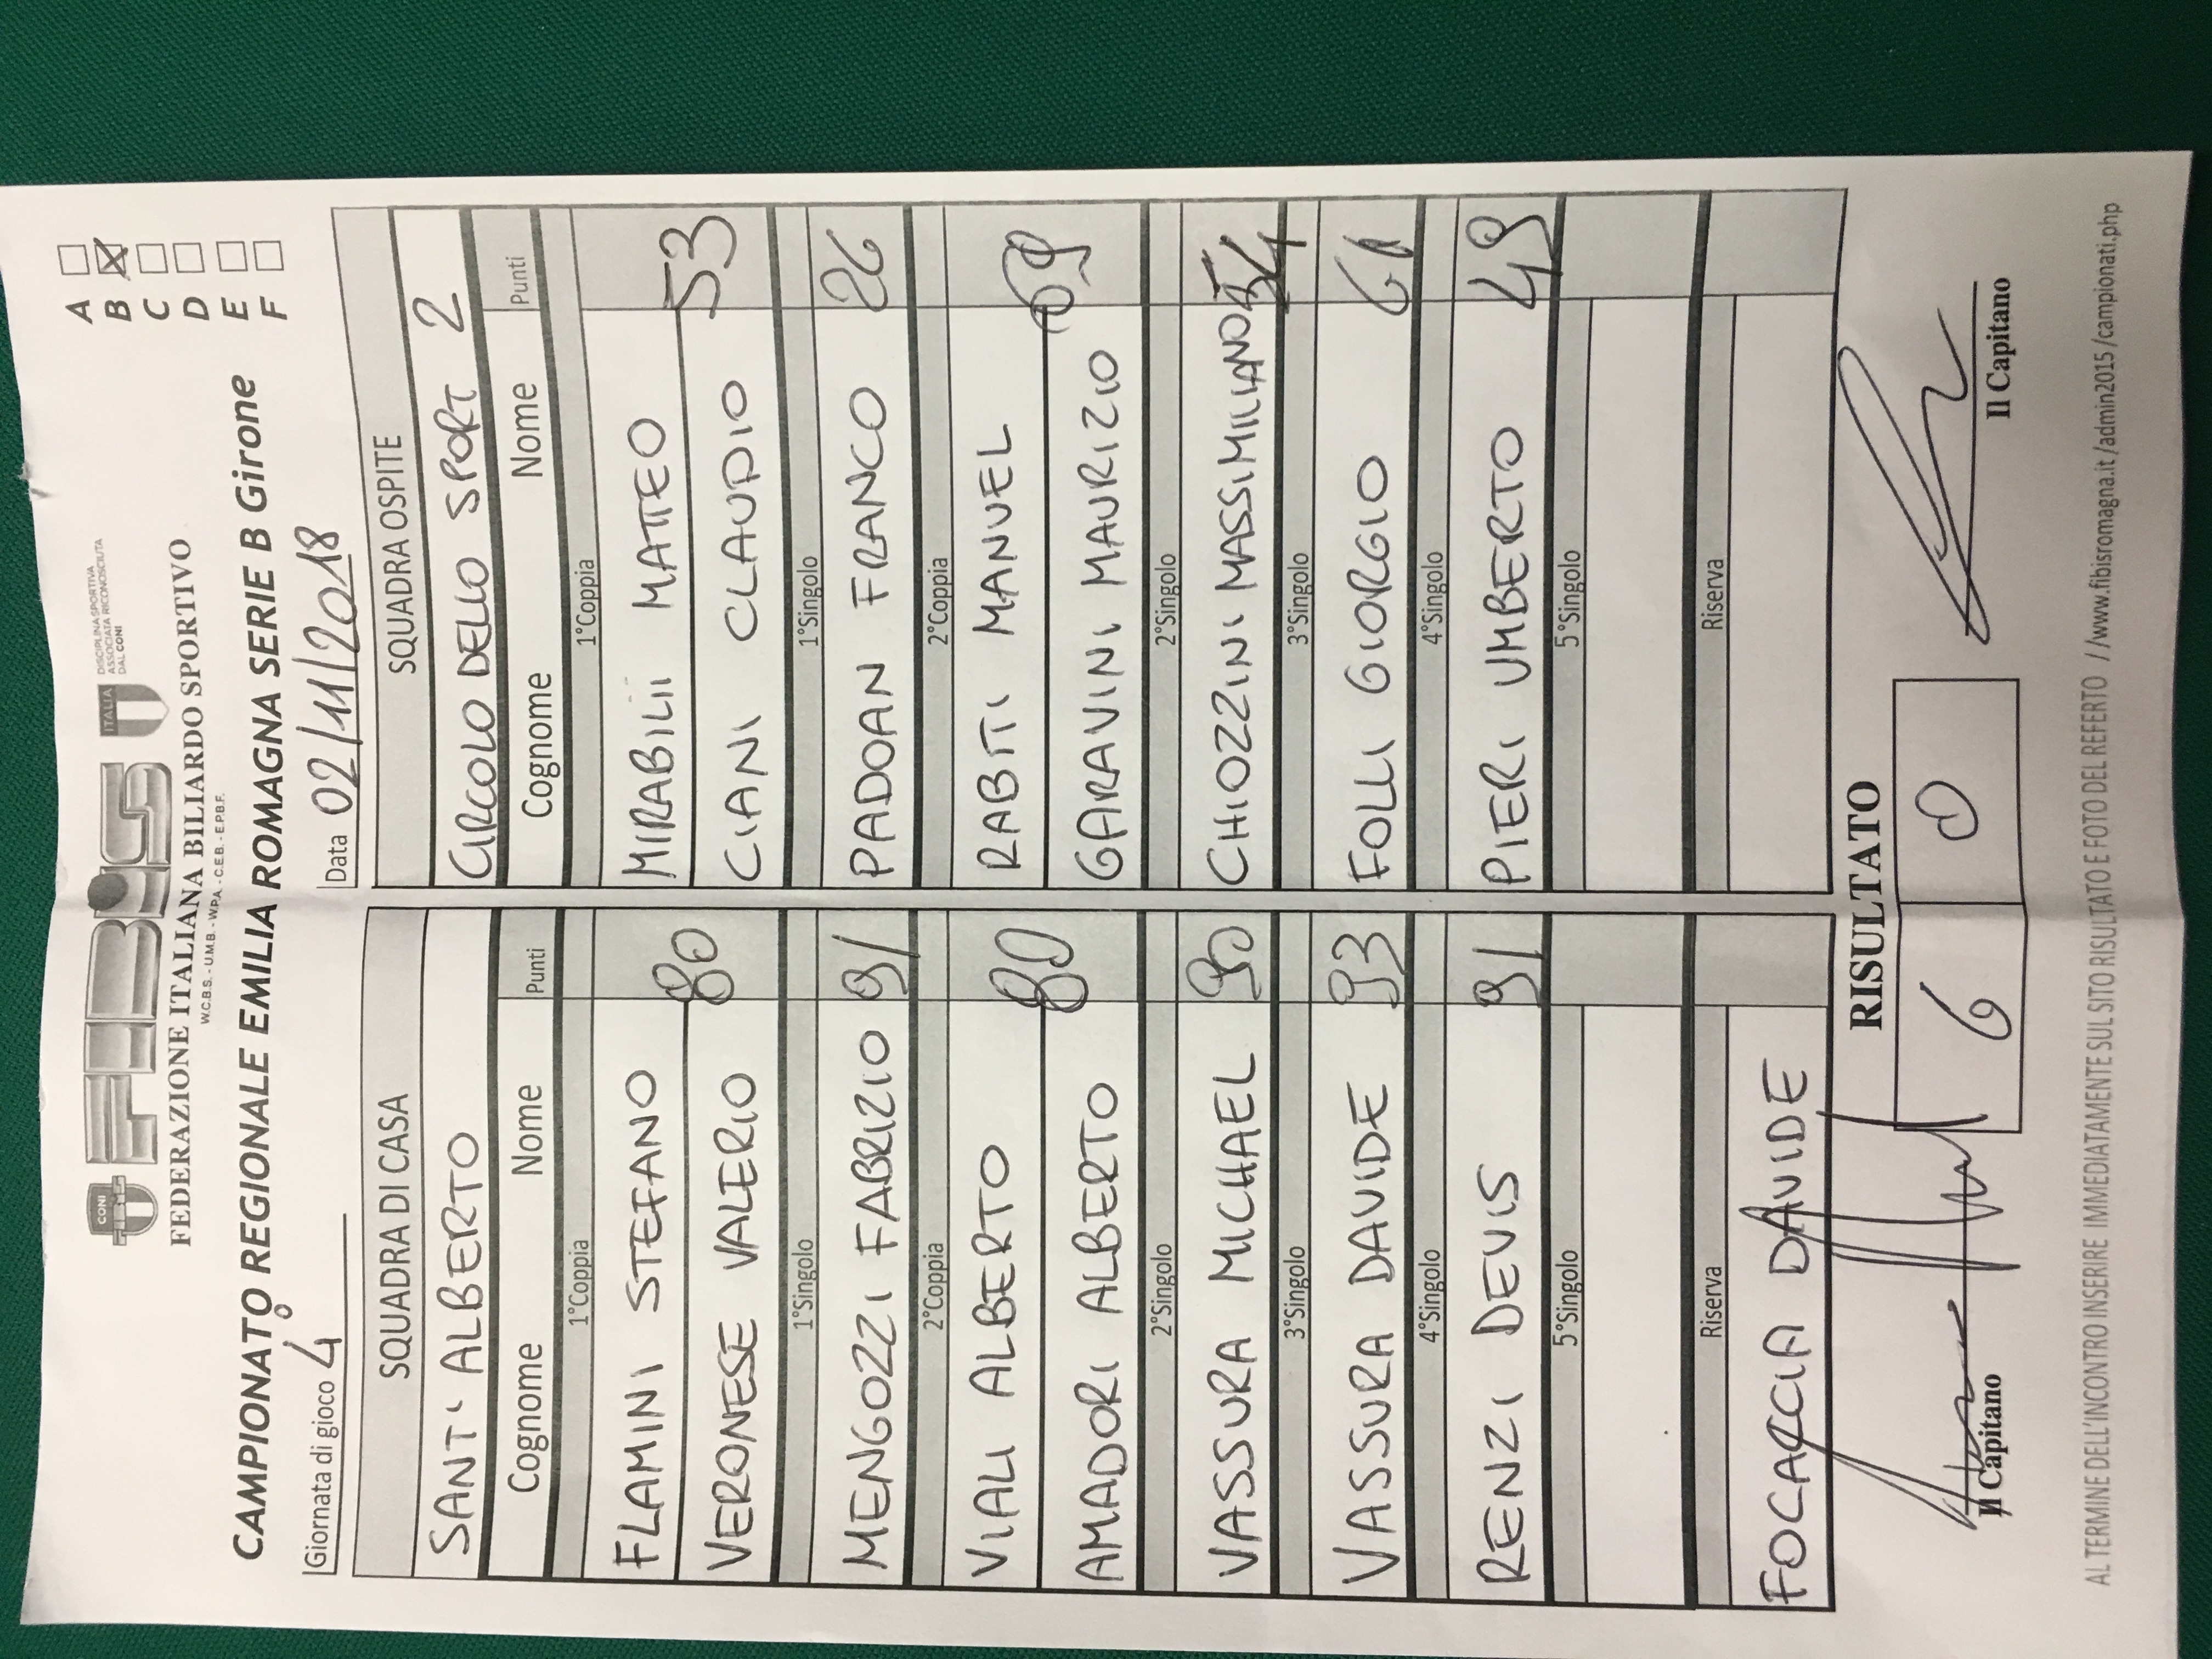 CONI
FIBiS
ITALIA
DISCIPLINA SPORTIVA
ASSOCIATA RICONOSCIUTA
DAL CONI
FEDERAZIONE ITALIANA BILIARDO SPORTIVO
W.C.B.S. - U.M.B. - W.P.A. - C.E.B. - E.P.B.F.
CAMPIONATO REGIONALE EMILIA ROMAGNA SERIE B Girone
A
B X
C
D
E
F
Giornata di gioco 4° Data 02/11/2018
SQUADRA DI CASA SQUADRA OSPITE
SANT' ALBERTO CIRCOLO DELLO SPORT 2
Cognome Nome Punti Cognome Nome Punti
1°Coppia 1°Coppia
FLAMINI STEFANO MIRABILII MATTEO
80 53
VERONESE VALERIO CIANI CLAUDIO
1°Singolo 1°Singolo
MENGOZZI FABRIZIO 91 PADOAN FRANCO 26
2°Coppia 2°Coppia
VIALI ALBERTO RABITI MANUEL
80 69
AMADORI ALBERTO GARAVINI MAURIZIO
2°Singolo 2°Singolo
VASSURA MICHAEL 90 CHIOZZINI MASSIMILIANO 54
3°Singolo 3°Singolo
VASSURA DAVIDE 93 FOLLI GIORGIO 61
4°Singolo 4°Singolo
RENZI DEVIS 91 PIERI UMBERTO 49
5°Singolo 5°Singolo
Riserva Riserva
FOCACCIA DAVIDE
RISULTATO
6 0
Il Capitano Il Capitano
AL TERMINE DELL'INCONTRO INSERIRE IMMEDIATAMENTE SUL SITO RISULTATO E FOTO DEL REFERTO //www.fibisromagna.it/admin2015/campionati.php